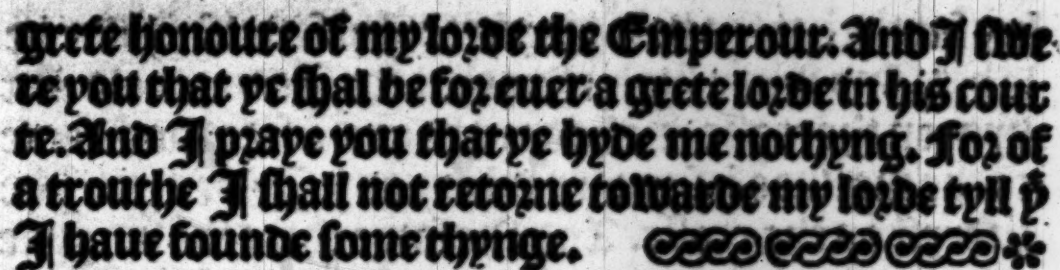 grete honoure of my lorde the Emperour. And I swe-
re you that ye shal be for euer a grete lorde in his cour
te. And I praye you that ye hyde me nothyng. For of
a trouthe I shall not retorne towarde my lorde tyll yͭ
I haue founde some thynge.